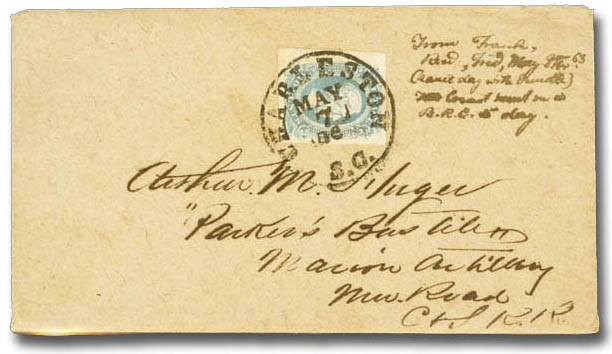 From Frank,
Recd, Fred, May 8th 63
day with
went on
B.R.C. to day.
CHARLESTON
MAY
7
S.C.
Arthur M. Huger
"Parker's Bastion
Marion Artillery
New Road
C & S R. R.